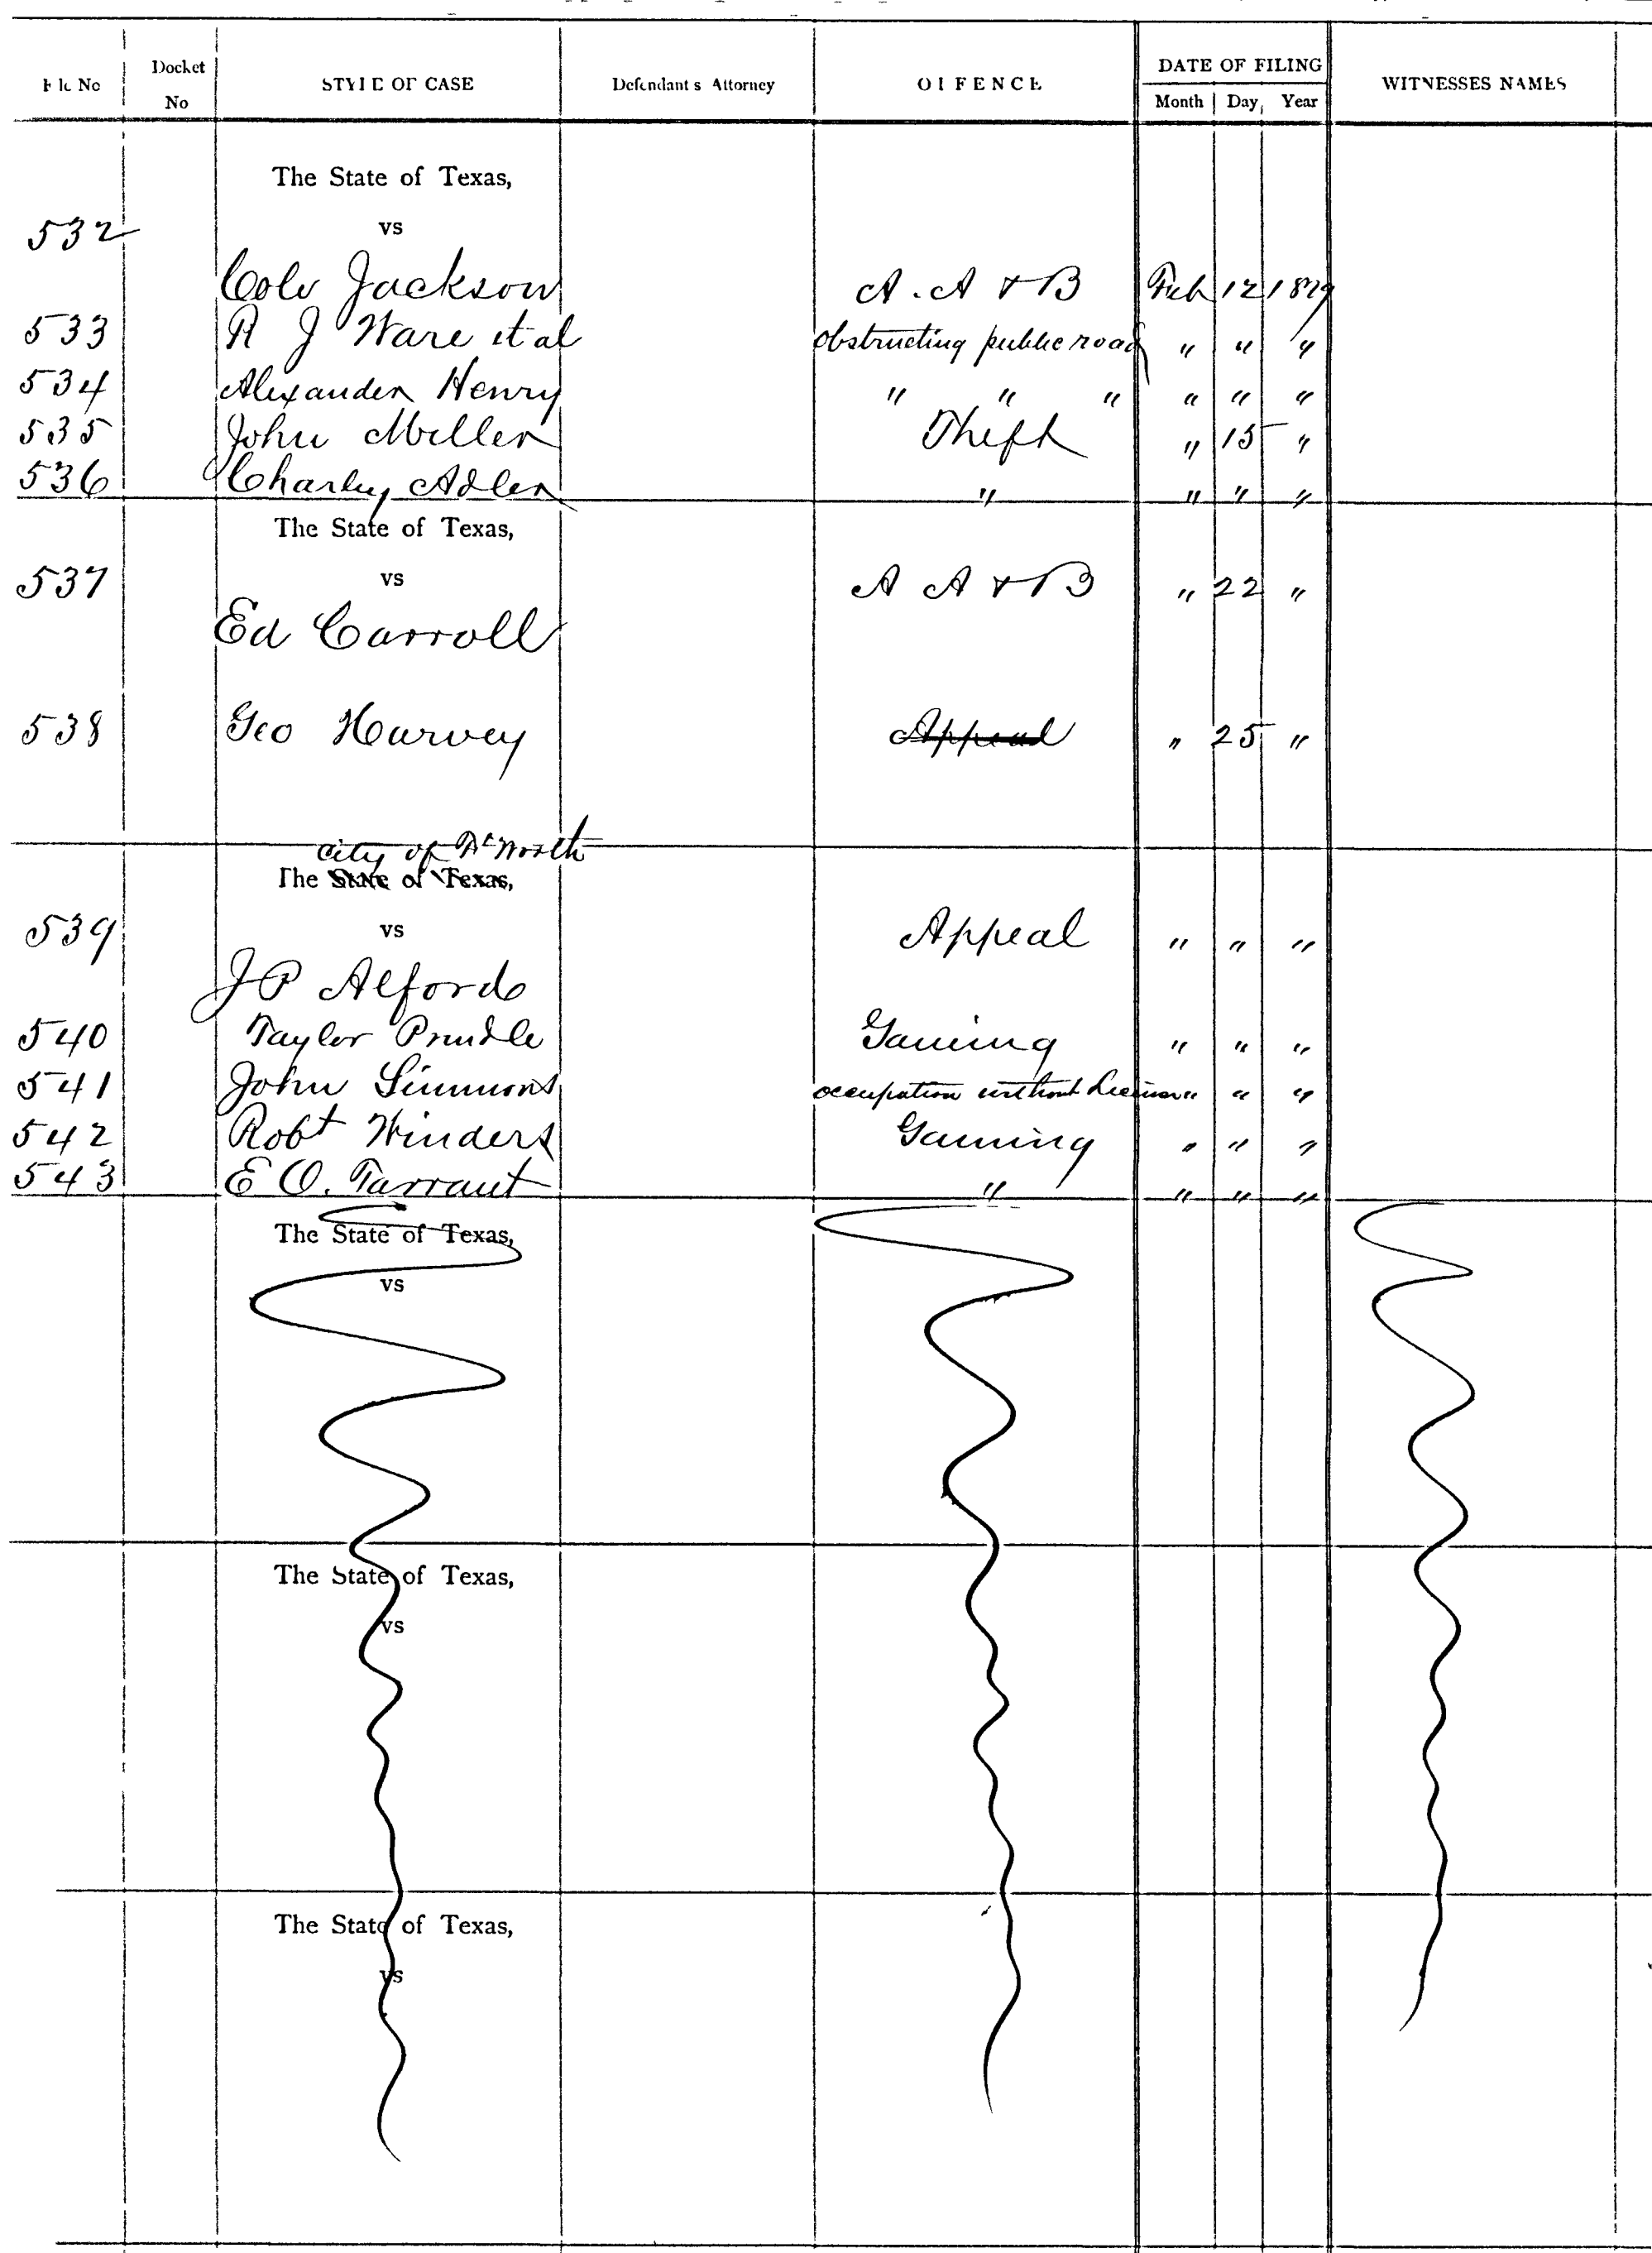 File No Docket No STYLE OF CASE Defendant s Attorney OFFENCE DATE OF FILING WITNESSES NAMES
Month Day Year
The State of Texas,
532 vs
Cole Jackson A. A & B Feb 12 1879
533 R J Ware et al obstructing public road " " "
534 Alexander Henry " " " " " "
535 John Miller Theft " 15 "
536 Charley Adler " " " "
The State of Texas,
537 vs A A & B " 22 "
Ed Carroll
538 Geo Harvey Appeal " 25 "
city of Ft Worth
The State of Texas,
539 vs Appeal " " "
J P Alford
540 Taylor Prindle Gaming " " "
541 John Simmons occupation without License " " "
542 Robt Winders Gaming " " "
543 E O. Tarrant " " " "
The State of Texas,
vs
The State of Texas,
vs
The State of Texas,
vs